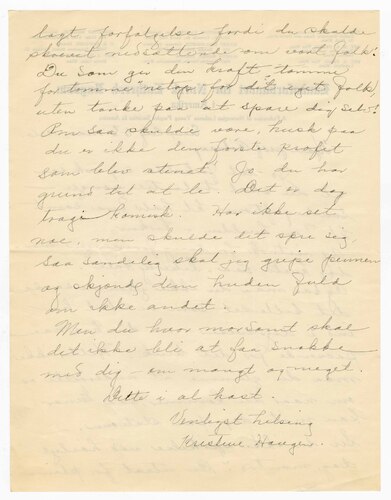 lagt forfølgelse fordi du skulde
skrevet nedsættende om vort folk!
Du som gir din kraft tomme
for tomme netop for dit eget folk,
uten tanke paa at spare dig selv!
Om saa skulde være, husk paa
du er ikke den første profet
som blev stenet. Ja du har
grund til at le. Det er dog
tragi komisk. Har ikke set
noe, men skulde det spre sig,
saa sandelig skal jeg gripe pennen
og skjønde dem huden fuld
om ikke andet.
Men du hvor morsomt skal
det ikke bli at faa snakke
med dig - om mangt og meget.
Dette i al hast.
Venligst hilsing
Kristine Haugen.